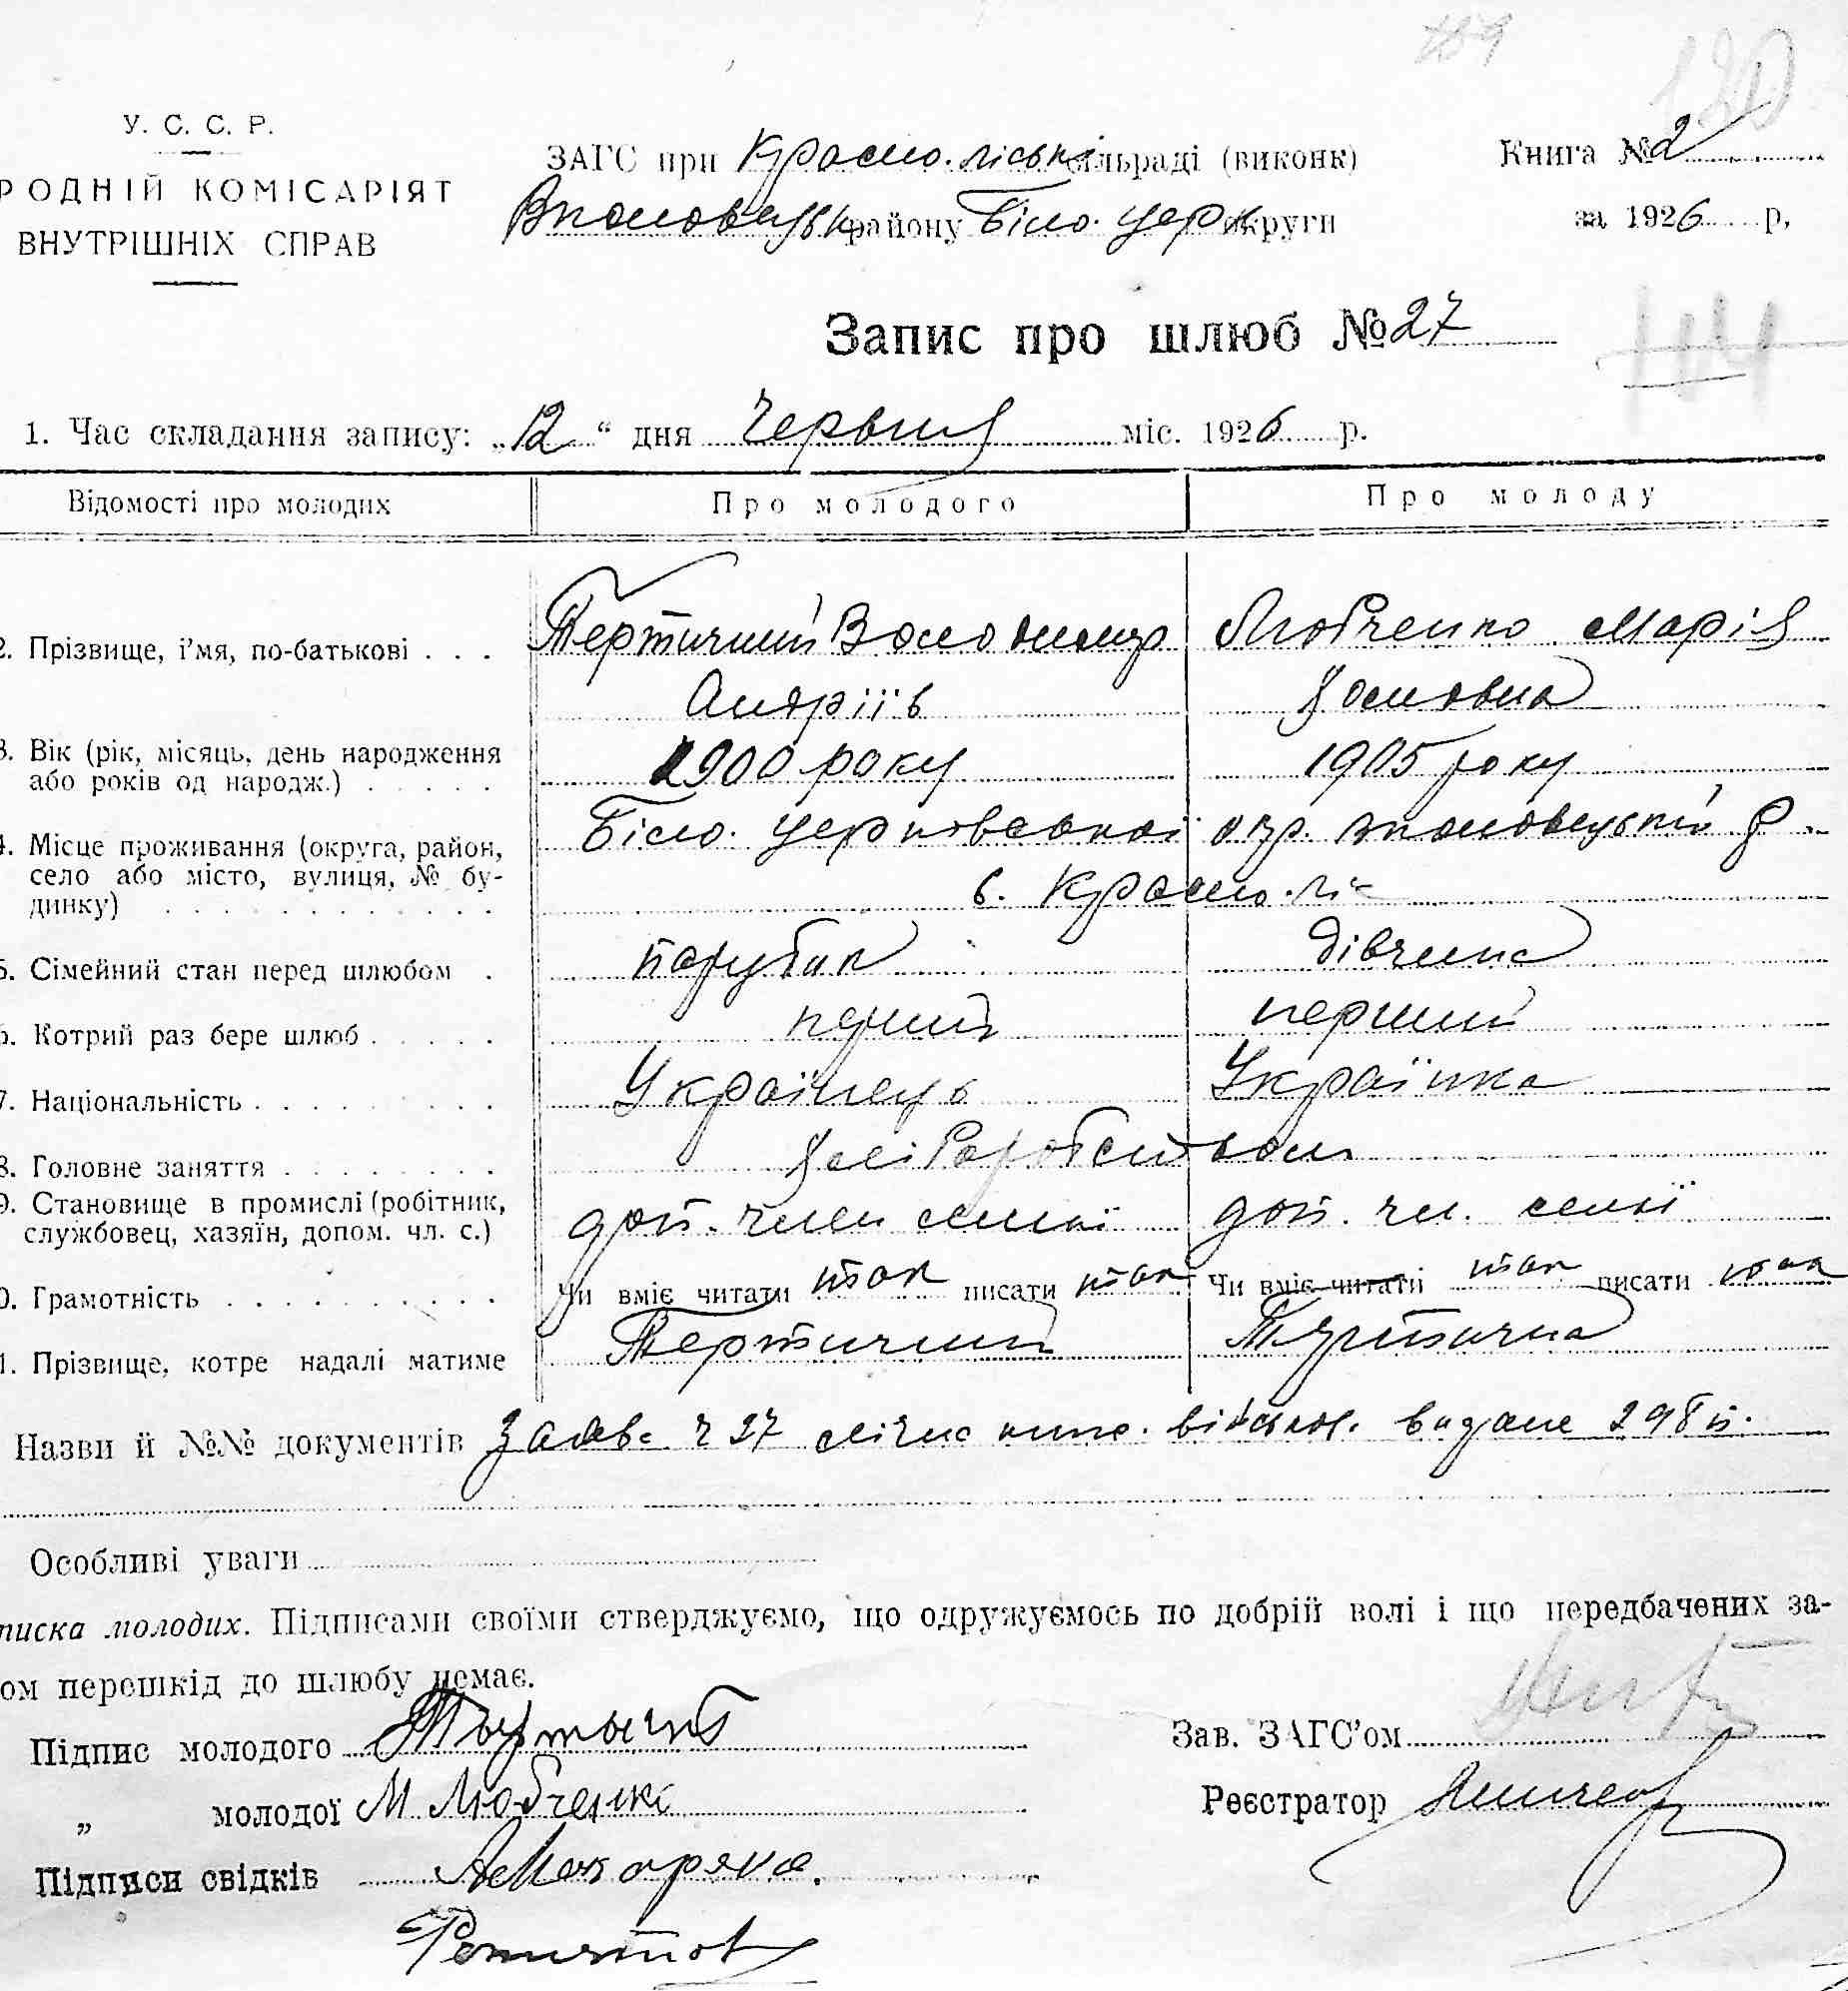 120
У. С. С. Р.
РОДНІЙ КОМІСАРІЯТ
ВНУТРІШНІХ СПРАВ
ЗАГС при Красно.ліські сільраді (виконк)
району Біло. Церк округи
Книга № 2
за 1926 р,
Запис про шлюб № 27
44
1. Час складання запису: „12“ дня Червня міс. 1926 р.
Відомості про молодих Про молодого Про молоду
2. Прізвище, і'мя, по-батькові . . . Тертичний Володимир Любченко Марія
Андріїв
3. Вік (рік, місяць, день народження
або років од народж.) . . . . . 1900 року 1905 року
4. Місце проживання (округа, район,
село або місто, вулиця, № бу-
динку) . . . . . . . . . . . . Біло. Церковської окр.
с. Красно.ліс
5. Сімейний стан перед шлюбом . парубок дівчина
6. Котрий раз бере шлюб . . . . . перший
7. Національність . . . . . . . . Українець Українка
8. Головне заняття . . . . . . .
9. Становище в промислі (робітник,
службовец, хазяїн, допом. чл. с.) доп. член семьї доп. чл. семьї
10. Грамотність . . . . . . . . . . Чи вміє читати так писати так Чи вміє читати так писати так
11. Прізвище, котре надалі матиме Тертичний Тертична
Назви й №№ документів Заява ч 27 видане 298 п.
Особливі уваги
писка молодих. Підписами своїми стверджуємо, що одружуємось по добрій волі і що передбачених за-
ом перешкід до шлюбу немає.
Підпис молодого
„ молодої М Любченко
Підписи свідків А Макаряка.
Зав. ЗАГС'ом
Реєстратор